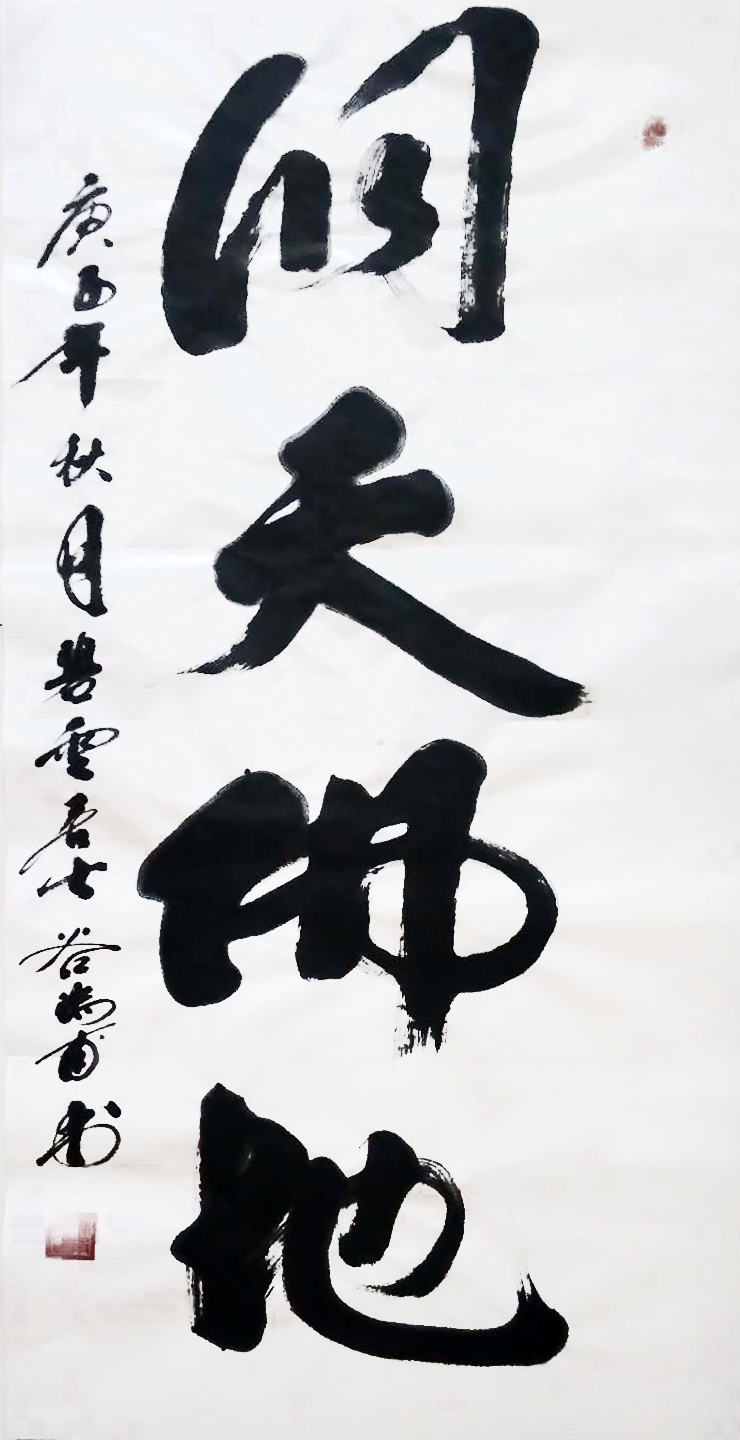 洞天佛地
庚子年秋月碧雲居士谷瑞甫书